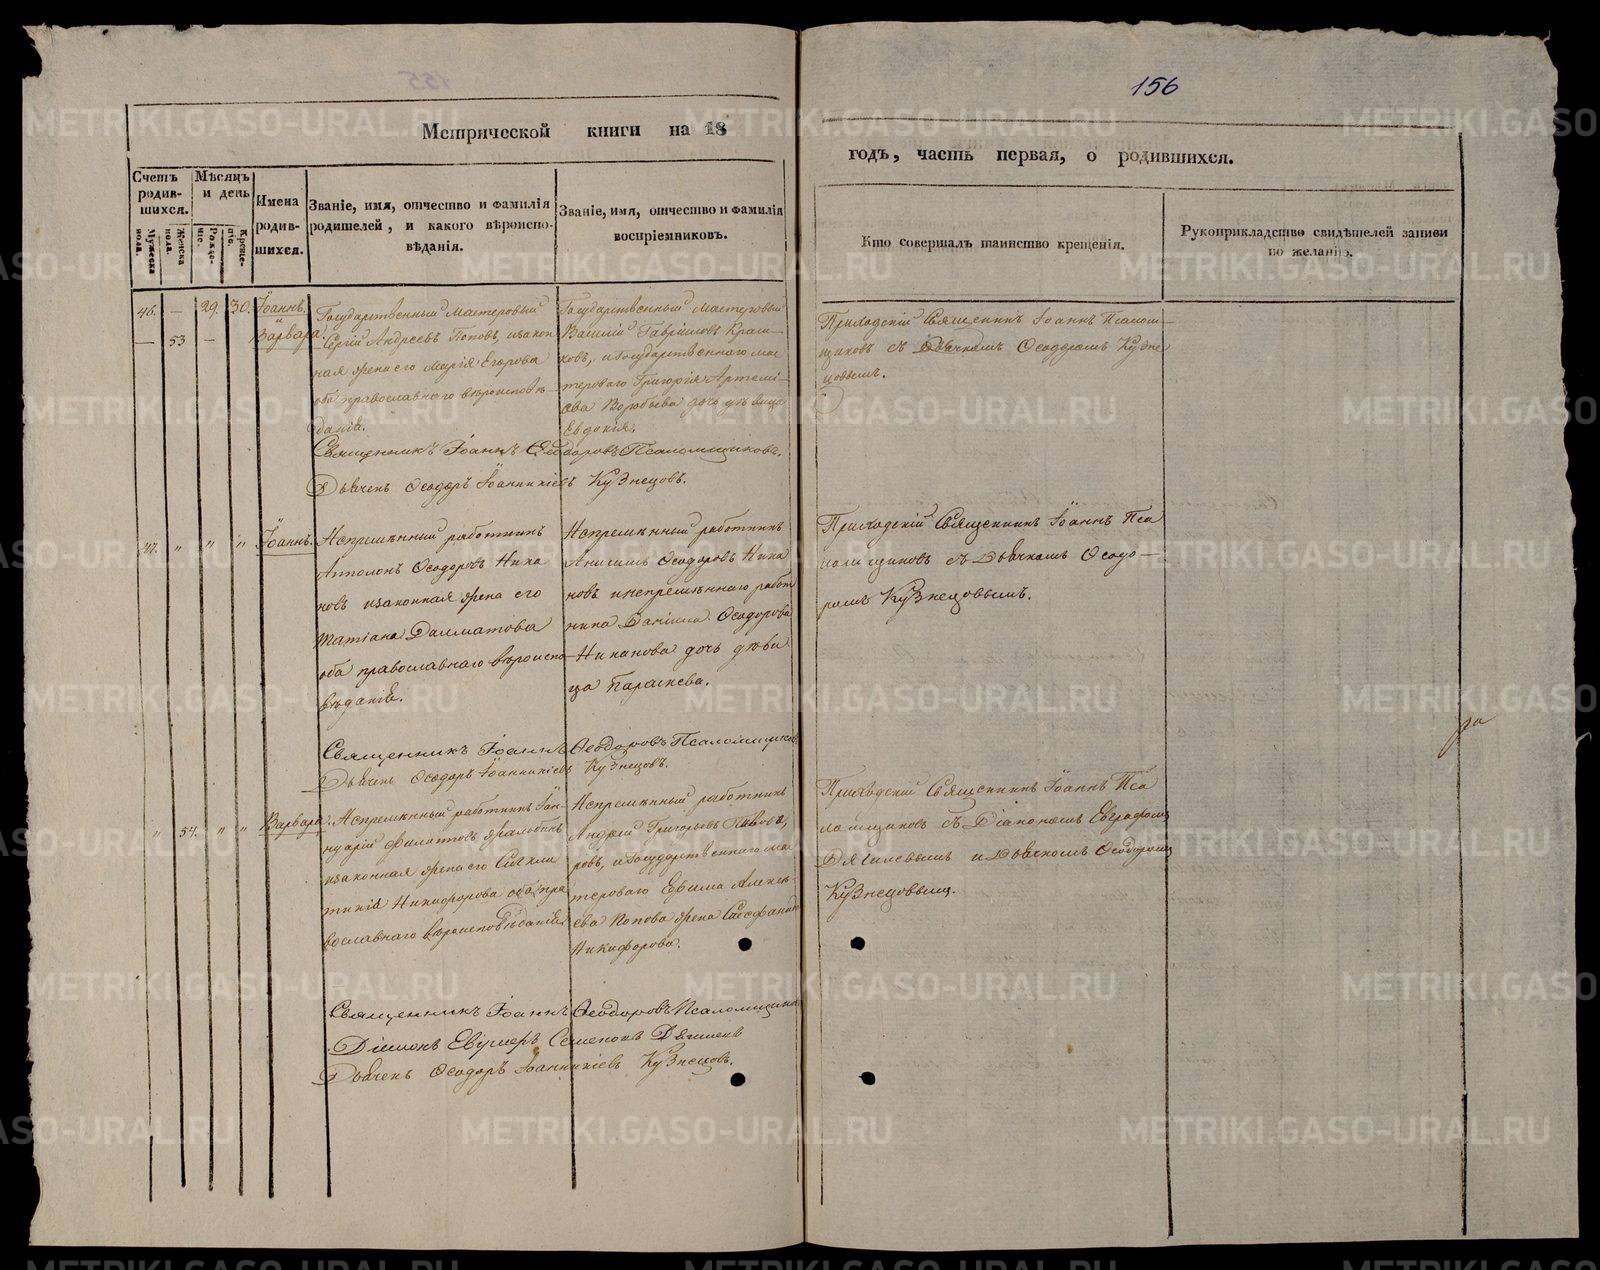 156
Метрической книги на 18
годъ, часть первая, о родившихся.
Счетъ родив-шихся.
Мужеска пола.
Женска пола.
Мѣсяцъ и день
Рожде-нiе.
Креще-нiе.
Имена родив-шихся.
Званіе, имя, отчество и фамилія родителей, и какого вѣроиспо-вѣданія.
Званіе, имя, отчество и фамилія воспріемниковъ.
Кто совершалъ таинство крещенія.
Рукоприкладство свидѣтелей записи по желанію.
46. — 29. 30. Іоаннъ.
— 53 — Варвара.
Государственный мастеровый
Сергій Андреевъ Поповъ, изакон
ная жена его Марія Егорова
оба православнаго вѣроисповѣ
данія.
Государственный мастеровый
Василій Гавріиловъ
ковъ, и государственнаго ма
стероваго Григорія Артемі—
ева Воробьева дочь дѣвица
Евдокія.
Приходскій Священникъ Іоаннъ Псалом
щиковъ съ Дьячкомъ Ѳеодоромъ Кузне
цовымъ.
Священникъ Іоаннъ Ѳеодоровъ Псаломщиковъ.
Дьячекъ Ѳеодоръ Іоанникіевъ Кузнецовъ.
47. " " " Іоаннъ.
Непремѣнный работникъ
Ѳеодоровъ Ника
новъ изаконная жена его
Татіана Далматова
оба православнаго вѣроиспо
вѣданія.
Непремѣнный работникъ
Анисимъ Ѳеодоровъ Ника
новъ инепремѣннаго работ
ника Даніила Ѳеодорова
Никанова дочь дѣви
ца Параскева.
Приходскій Священникъ Іоаннъ Пса
ломщиковъ съ Дьячкомъ Ѳеодо—
ромъ Кузнецовымъ.
Священникъ Іоаннъ Ѳеодоровъ Псаломщиковъ
Дьячекъ Ѳеодоръ Іоанникіевъ Кузнецовъ.
" 54. " " Варвара.
Непремѣнный работникъ
Филатовъ
изаконная жена его
Никифорова оба пра
вославнаго вѣроисповѣданія.
Непремѣнный работникъ
Андрей Григорьевъ
ровъ, и государственнаго ма
стероваго Ефима Алексѣ-
ева Попова жена
Никифорова.
Приходскій Священникъ Іоаннъ Пса
ломщиковъ съ Діакономъ
Дягилевымъ и Дьячкомъ Ѳеодоромъ
Кузнецовымъ.
Священникъ Іоаннъ Ѳеодоровъ Псаломщиковъ
Діаконъ
Дьячекъ Ѳеодоръ Іоанникіевъ Кузнецовъ.
METRIKI.GASO-URAL.RU